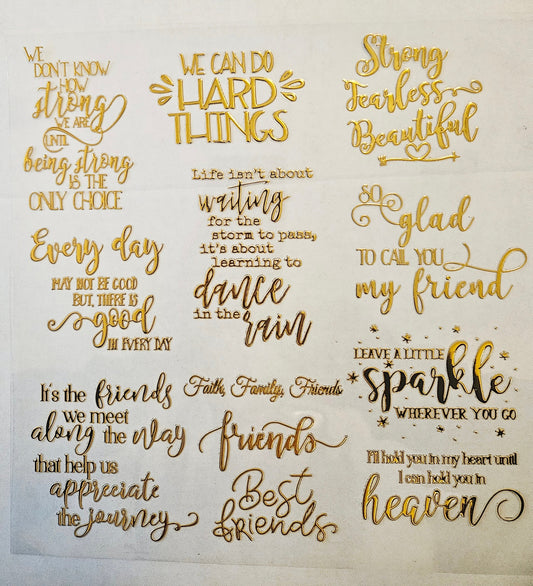 WE
DON'T KNOW
HOW
strong
WE ARE
UNTIL
being strong
IS THE
ONLY CHOICE
WE CAN DO
HARD
THINGS
Strong
Fearless
Beautiful
Life isn't about
waiting
for the
storm to pass,
it's about
learning to
dance
in the
rain
SO
glad
TO CALL YOU
my friend
Every day
MAY NOT BE GOOD
BUT, THERE IS
good
IN EVERY DAY
LEAVE A LITTLE
sparkle
WHEREVER YOU GO
It's the friends
we meet
along the way
that help us
appreciate
the journey
Faith, Family, Friends
friends
Best
friends
I'll hold you in my heart until
I can hold you in
heaven